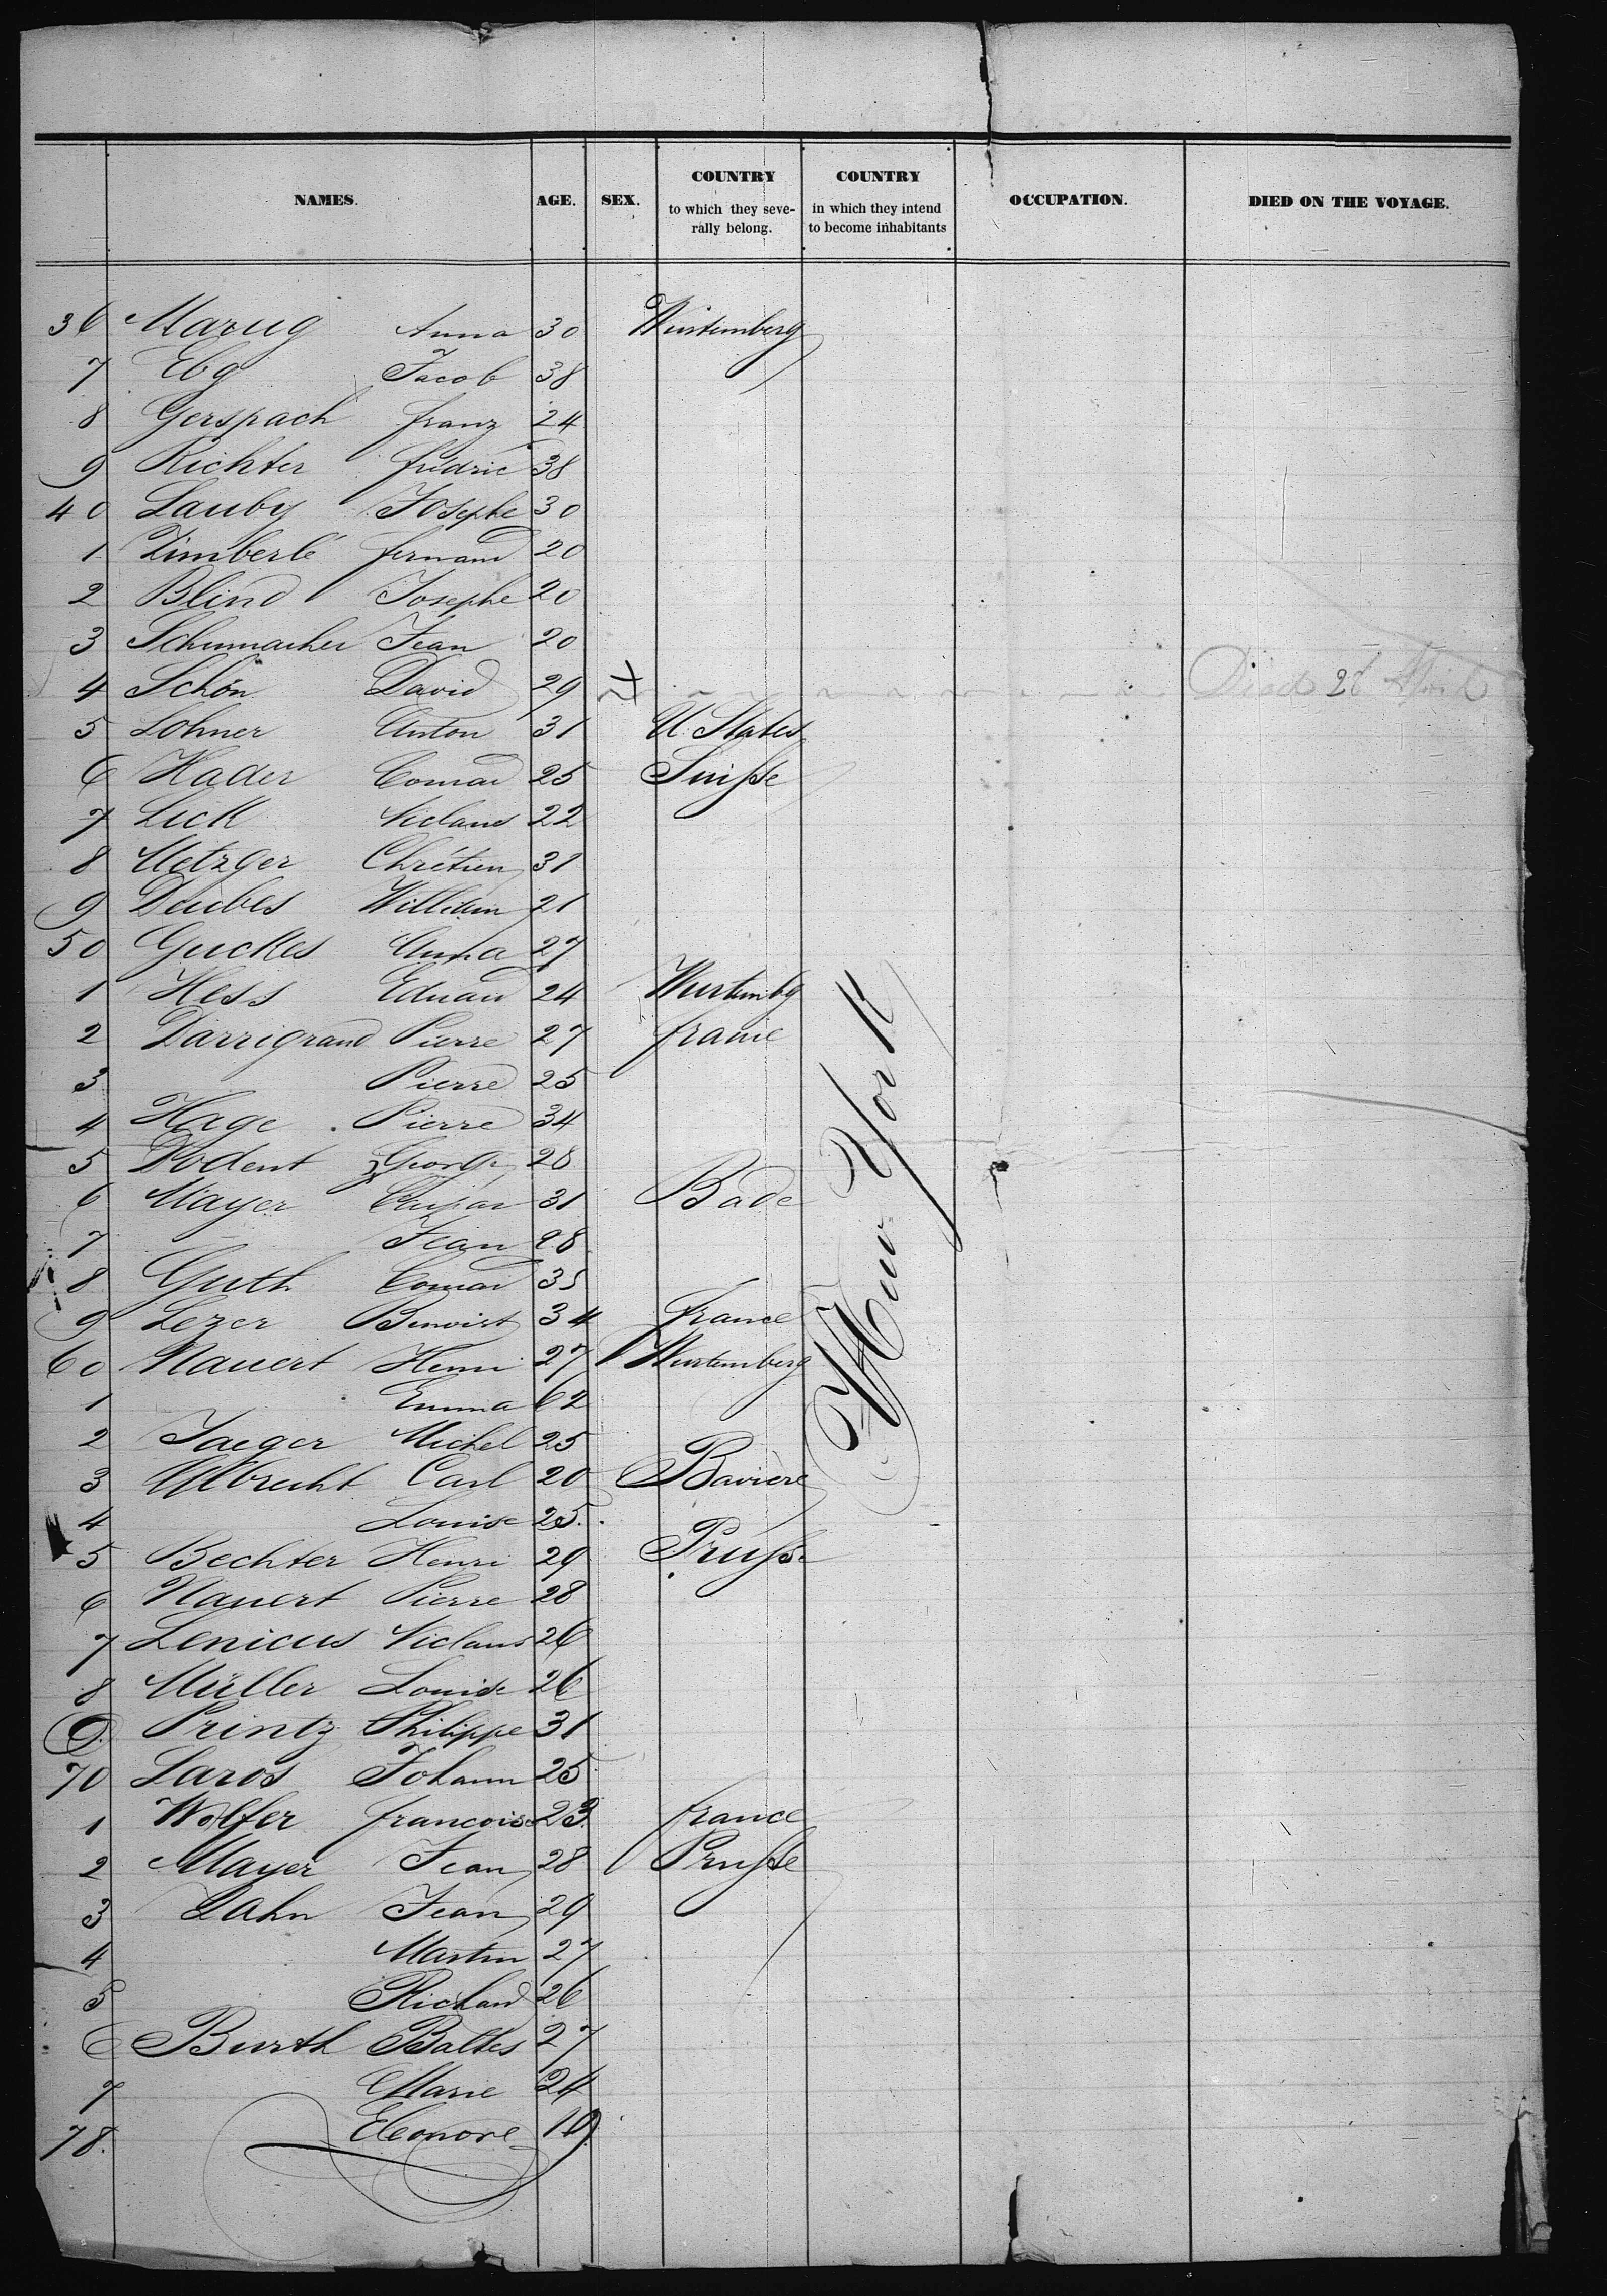 NAMES. AGE. SEX. COUNTRY to which they seve- COUNTRY in which they intend OCCUPATION. DIED ON THE VOYAGE.
rally belong. to become inhabitants
36 Marug Anna 30 Würtemberg
7 Ebg Jacob 38
8 Gerspach franz 24
9 Richter fridric 38
40 Lauby Josephe 30
1 Zimberlé fernand 20
2 Blind Josephe 20
3 Schumacher Jean 20
4 Schön David 29 Died 26 April
5 Lohner Anton 31 U. States
6 Hader Conrad 25 Suisse
7 Lick Niclaus 22
8 Metzger Chrétien 31
9 Daubes William 21
50 Guckes Anna 27
1 Hess Eduard 24 Wurtembg
2 Darrigrand Pierre 27 france
3 Pierre 25
4 Hage Pierre 34
5 Dodent George 28
6 Mayer 31 Bade
7 Jean 28
8 Guth Conrad 35
9 Lezer Benoist 34 france
60 Nauert Henri 27 Wurtemberg
1 Emma 62
2 Jaeger Michel 25
3 Albrecht Carl 20 Baviere
4 Louise 25
5 Bechter Henri 29 Prusse
6 Nauert Pierre 28
7 Lenicus Niclaus 26
8 Müller Louise 26
9 Printz Philippe 31
70 Laros Johann 25
1 Wolfer francoise 23 france
2 Mayer Jean 28 Prusse
3 Lahn Jean 29
4 Martin 27
5 Richard 26
6 Burth Baltes 27
7 Marie 24
78. Eleonore 19
New York